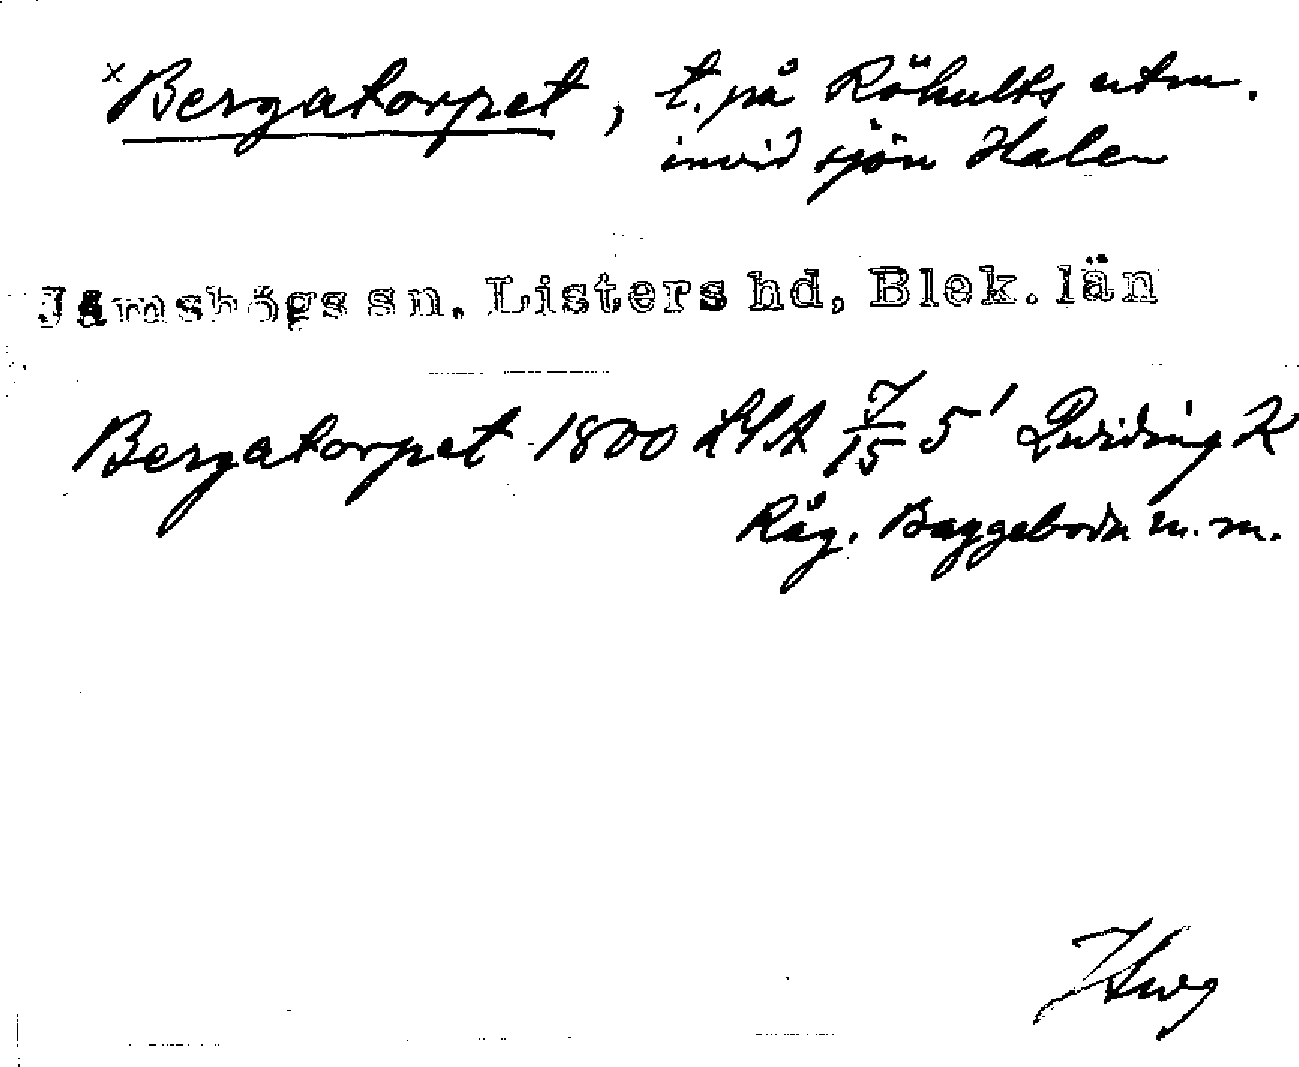 × Bergatorpet, t. på Rökults utm.
invid sjön Halen
Jämshögs sn. Listers hd, Blek. län
Bergatorpet 1800 LSA 7/15 5' Qwiding K
Råg. Baggeboda m.m.